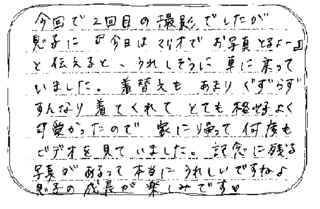 今回で2回目の撮影でしたが
息子に『今日はマリオでお写真とるよー』
と伝えると、うれしそうに車に乗って
いました。着替えもあまりぐずらず
すんなり着てくれてとても格好よく
可愛かったので家に帰って何度も
ビデオを見ていました。記念に残る
写真があるって本当にうれしいですねよ
息子の成長が楽しみです♥